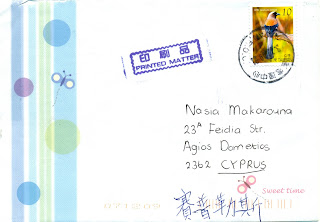 10
印刷品
PRINTED MATTER
Nasia Makarouna
23A Feidia Str.
Agios Dometios
2362 CYPRUS
Sweet time
賽普勒斯
071209